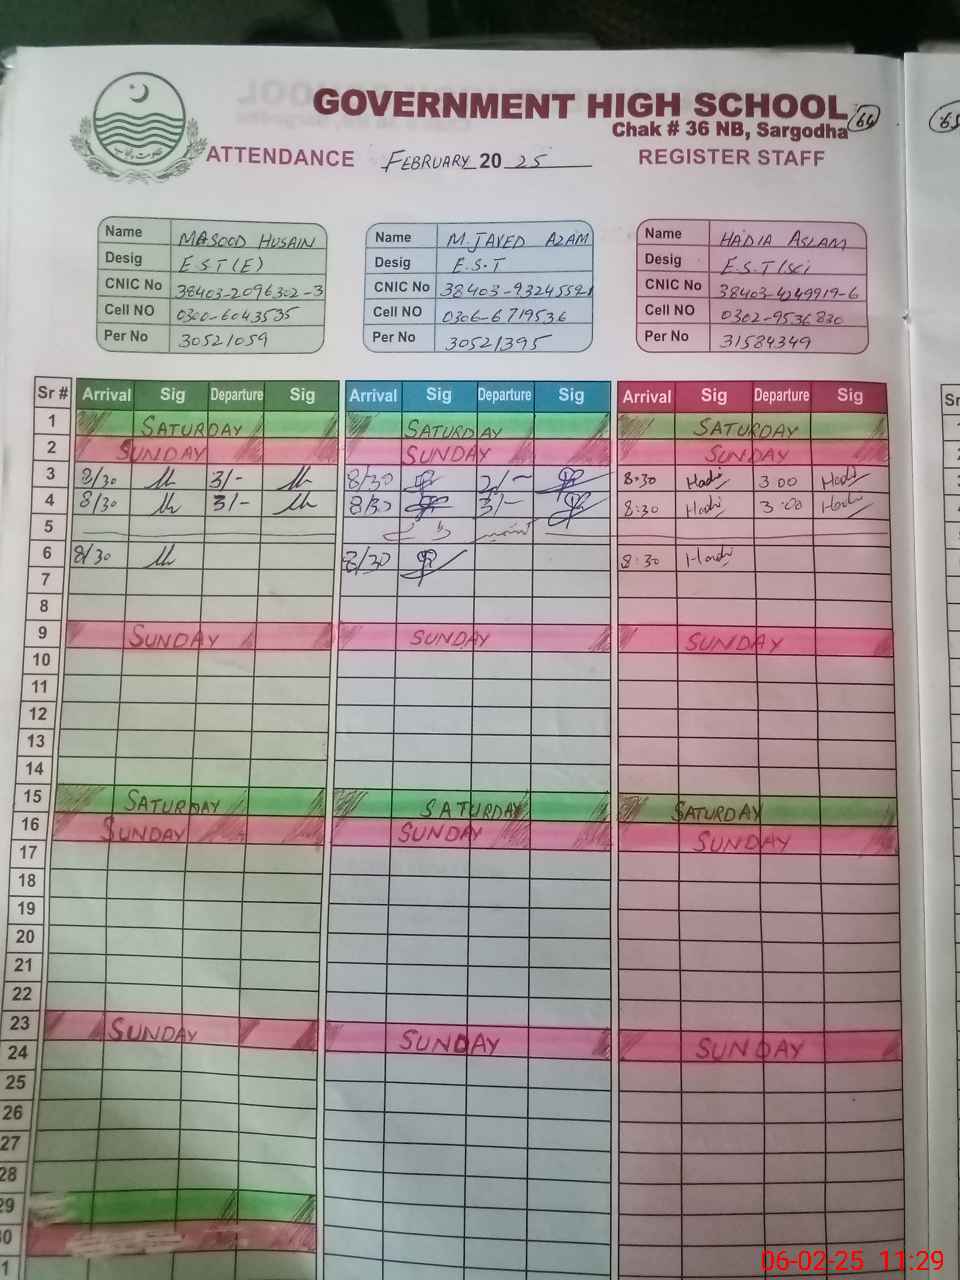 GOVERNMENT HIGH SCHOOL 64
Chak # 36 NB, Sargodha
ATTENDANCE FEBRUARY 20 25 REGISTER STAFF
Name MASOOD HUSAIN
Desig E.S.T(E)
CNIC No 38403-2096302-3
Cell NO 0300-6043535
Per No 30521059
Name M.JAVED AZAM
Desig E.S.T
CNIC No 38403-93245521
Cell NO 0306-6719536
Per No 30521395
Name HADIA ASLAM
Desig E.S.T(Sci
CNIC No 38403-4249919-6
Cell NO 0302-9536830
Per No 31584349
Sr # Arrival Sig Departure Sig Arrival Sig Departure Sig Arrival Sig Departure Sig
1 SATURDAY SATURDAY SATURDAY
2 SUNDAY SUNDAY SUNDAY
3 8/30 3/- 8/30 3/- 8:30 Hadi 3 00 Hadi
4 8/30 3/- 8/30 3/- 8:30 Hadi 3:00 Hadi
5
6 8/30 8/30 8:30 Hadi
7
8
9 SUNDAY SUNDAY SUNDAY
10
11
12
13
14
15 SATURDAY SATURDAY SATURDAY
16 SUNDAY SUNDAY SUNDAY
17
18
19
20
21
22
23 SUNDAY SUNDAY SUNDAY
24
25
26
27
28
29
30
06-02-25 11:29